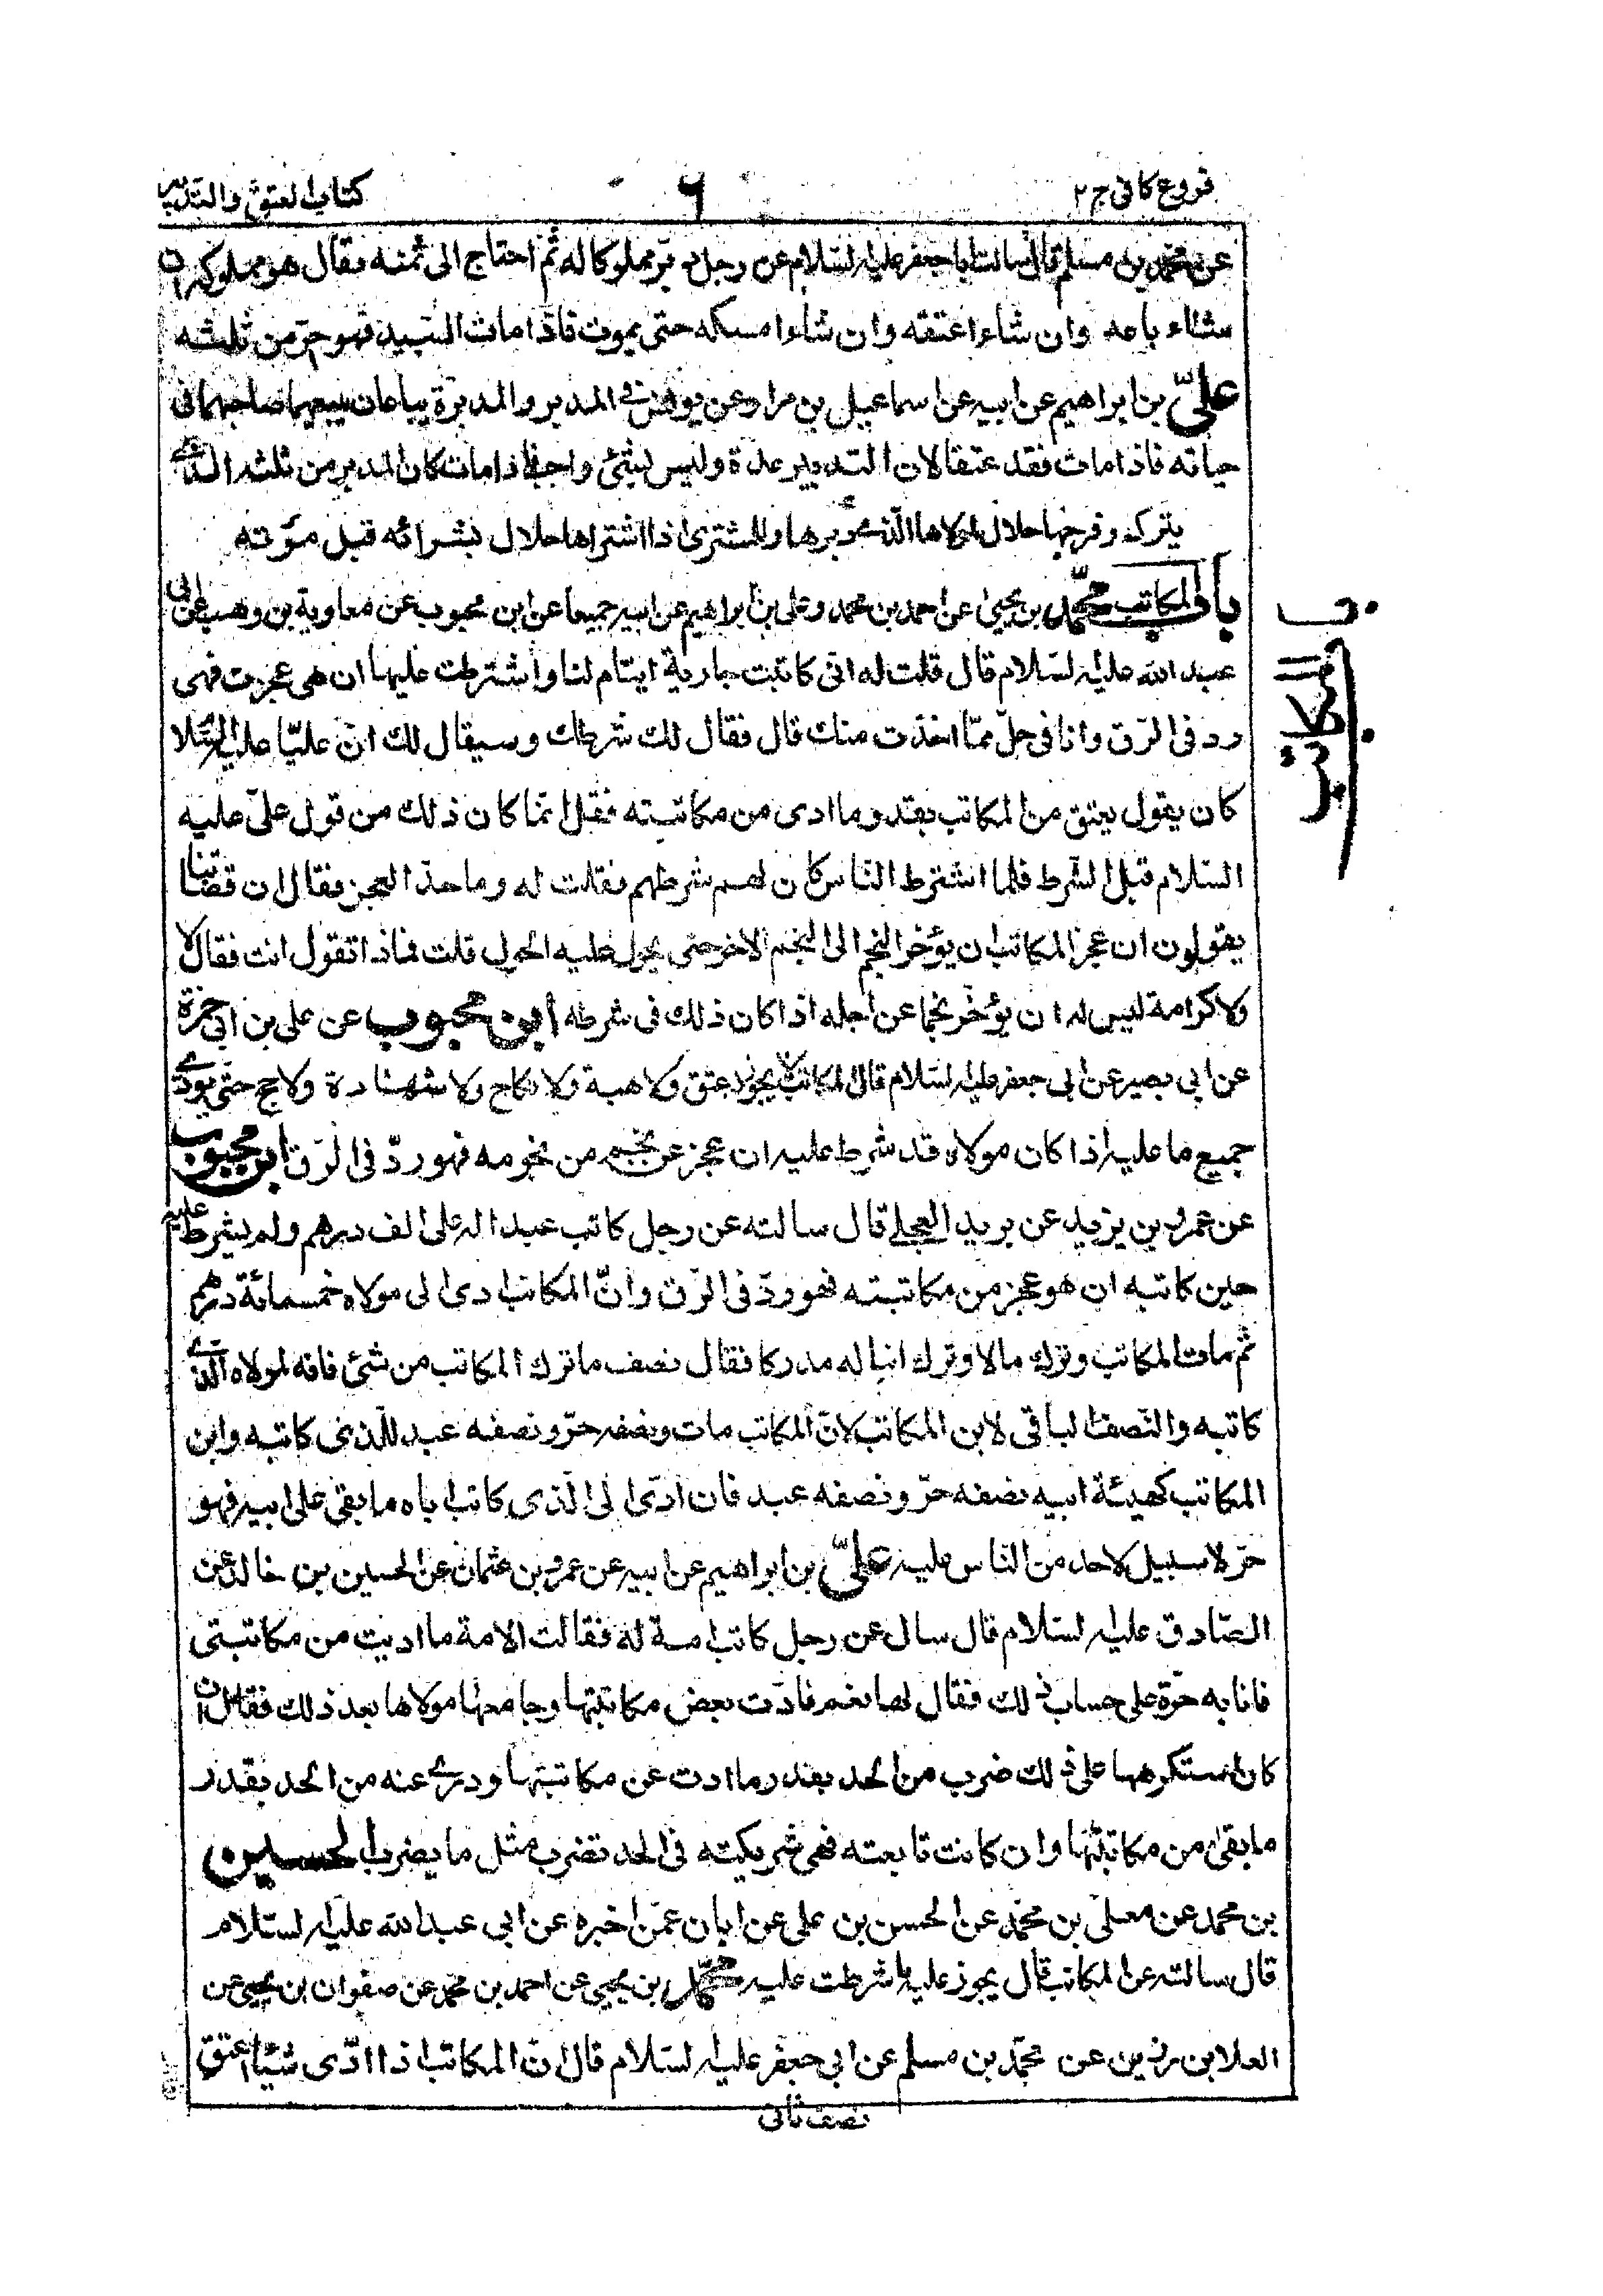 فروع كافى ج ٢
٦
كتاب العتق والتدبير
عن محمد بن مسلم قال سالت ابا جعفر عليه السّلام عن رجل دبّر مملوكا له ثم احتاج الى ثمنه فقال هو مملوكه ان
شاء باعه وان شاء اعتقه وان شاء امسكه حتى يموت فاذا مات السّيد فهو حرّ من ثلثه
علىّ بن ابراهيم عن ابيه عن اسماعيل بن مرار عن يونس فى المدبر والمدبرة يباعان يبيعهما صاحبهما فى
حياته فاذا مات فقد عتقا لان التدبير عدة وليس بشئ واجب فاذا مات كان المدبر من ثلثه الذى
يترك وفرجها حلال لمولاها الّذى دبرها وللمشترى اذا اشتراها حلال بشرائه قبل موته
باب المكاتب محمّد بن يحيى عن احمد بن محمد وعلى بن ابراهيم عن ابيه جميعا عن ابن محبوب عن معاوية بن وهب عن ابى
عبد الله عليه السّلام قال قلت له انى كاتبت جارية ايتام لنا واشترطت عليها ان هى عجزت فهى
رد فى الرّق وانا فى حلّ ممّا اخذت منك قال فقال لك شرطك وسيقال لك انّ عليّا عليه السّلا
كان يقول يعتق من المكاتب بقدر ما ادى من مكاتبته فقل انّما كان ذلك من قول علىّ عليه
السّلام قبل الشّرط فلما اشترط النّاس كان لهم شرطهم فقلت له وما حدّ العجز فقال ان قضاتنا
يقولون ان عجز المكاتب ان يؤخر النجم الى النجم الاخر حتى يحول عليه الحول قلت فماذا تقول انت فقال لا
ولا كرامة ليس له ان يؤخّر نجما عن اجله اذا كان ذلك فى شرطه ابن محبوب عن على بن ابى حمزة
عن ابى بصير عن ابى جعفر عليه السّلام قال المكاتب لا يجوز له عتق ولا هبة ولا نكاح ولا شهادة ولا حج حتى يودى
جميع ما عليه اذا كان مولاه قد شرط عليه ان عجز عن نجم من نجومه فهو ردّ فى الرّق ابن محبوب
عن عمرو بن يزيد عن بريد العجلى قال سالته عن رجل كاتب عبدا له على الف درهم ولم يشرط عليه
حين كاتبه ان هو عجز من مكاتبته فهو ردّ فى الرّق وانّ المكاتب ادى الى مولاه خمسمائة درهم
ثم مات المكاتب وترك مالا وترك ابنا له مدركا فقال نصف ما ترك المكاتب من شئ فانه لمولاه الّذى
كاتبه والنّصف الباقى لابن المكاتب لانّ المكاتب مات ونصفه حرّ ونصفه عبد للّذى كاتبه وابن
المكاتب كهيئة ابيه نصفه حرّ ونصفه عبد فان ادّى الى الّذى كاتب اباه ما بقى على ابيه فهو
حرّ لا سبيل لاحد من النّاس عليه علىّ بن ابراهيم عن ابيه عن عمرو بن عثمان عن الحسين بن خالد عن
الصّادق عليه السّلام قال سال عن رجل كاتب امة له فقالت الامة ما اديت من مكاتبتى
فانا به حرّة على حساب ذلك فقال لها نعم فادّت بعض مكاتبتها وجامعها مولاها بعد ذلك فقال ان
كان استكرهها على ذلك ضرب من الحد بقدر ما ادت عن مكاتبتها ودرئ عنه من الحد بقدر
ما بقى من مكاتبتها وان كانت تابعته فهى شريكته فى الحد تضرب مثل ما يضرب الحسين
بن محمد عن معلّى بن محمّد عن الحسن بن على عن ابان عمّن اخبره عن ابى عبد الله عليه السّلام
قال سالته عن المكاتب قال يجوز عليه ما شرطت عليه محمّد بن يحيى عن احمد بن محمّد عن صفوان بن يحيى عن
العلا بن رزين عن محمّد بن مسلم عن ابى جعفر عليه السّلام قال انّ المكاتب اذا ادّى شيئا اعتق
نصف ثانى
باب
المكاتب